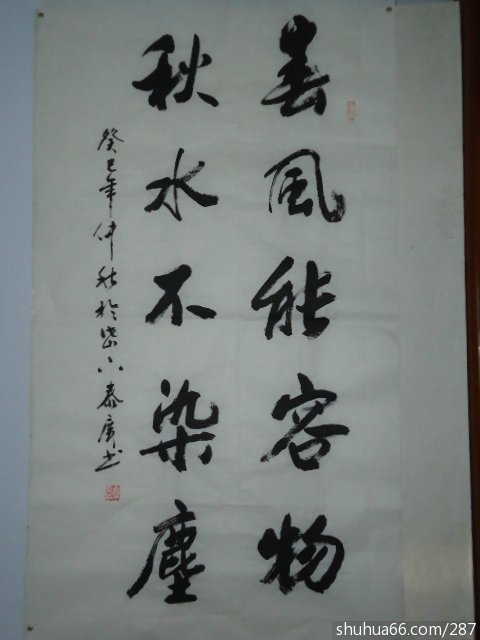 春風能容物
秋水不染塵
癸巳年仲秋於岱下泰廣书
shuhua66.com/287